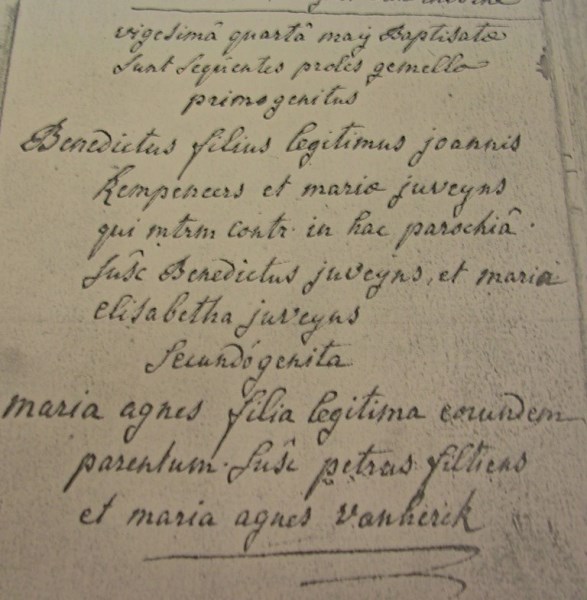 vigesimâ quartâ maÿ Baptisatæ
sunt sequentes proles gemellæ
primogenitus
Benedictus filius legitimus joannis
kempeneers et mariæ juveyns
qui mtrm contr. in hac parochiâ.
susc Benedictus juveyns, et maria
elisabetha juveyns
secundógenita
maria agnes filia legitima eorundem
parentum. susc petrus filtiens
et maria agnes vanherck